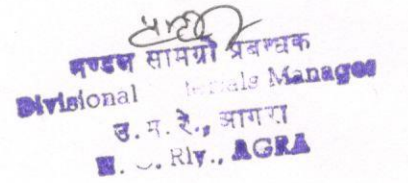 मण्डल सामग्री प्रबन्धक
Divisional Manager
उ. म. रे., आगरा
Rly., AGRA